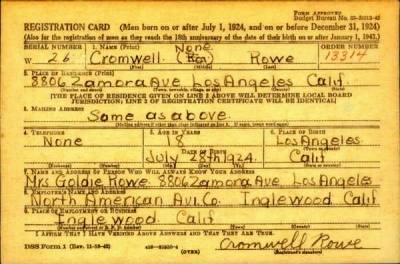 FORM APPROVED
REGISTRATION CARD (Men born on or after July 1, 1924, and on or before December 31, 1924)
(Also for the registration of men as they reach the 18th anniversary of the date of their birth on or after January 1, 1943.)
SERIAL NUMBER 1. NAME (Print) ORDER NUMBER
None
W 26 Cromwell Rowe 13314
(First) (Middle) (Last)
2. PLACE OF RESIDENCE (Print)
8806 Zamora Ave Los Angeles Calif.
[THE PLACE OF RESIDENCE GIVEN ON LINE 2 ABOVE WILL DETERMINE LOCAL BOARD
JURISDICTION; LINE 2 OF REGISTRATION CERTIFICATE WILL BE IDENTICAL]
3. MAILING ADDRESS
Same as above.
4. TELEPHONE 5. AGE IN YEARS 6. PLACE OF BIRTH
None 18 Los Angeles
DATE OF BIRTH
July 28th 1924 Calif
7. NAME AND ADDRESS OF PERSON WHO WILL ALWAYS KNOW YOUR ADDRESS
Mrs Goldie Rowe 8806 Zamora Ave Los Angeles
8. EMPLOYER'S NAME AND ADDRESS
North American Avi. Co. Inglewood Calif
9. PLACE OF EMPLOYMENT OR BUSINESS
Inglewood Calif
I AFFIRM THAT I HAVE VERIFIED ABOVE ANSWERS AND THAT THEY ARE TRUE.
DSS Form 1 (OVER) Cromwell Rowe
(Registrant's signature)